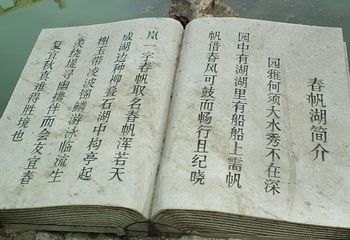 春帆湖简介
园雅何须大水秀不在深
园中有湖湖里有船船上需帆
帆借春风可鼓而畅行且纪晓
岚一字春帆取名春帆浑若天
成湖边种柳叠石湖中构亭起
榭玉带凌波锦鳞游泳临流生
美绕堤寻幽禧伴而会友宜春
复宜秋真难得胜境也